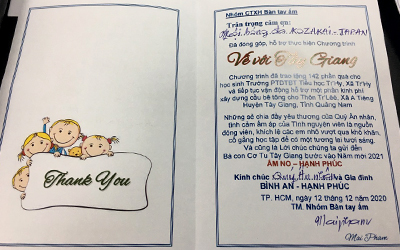 Thank You
Nhóm CTXH Bàn tay ấm
Trân trọng cảm ạ:
KOZAKAI - JAPAN
Đã đóng góp, hỗ trợ thực hiện Chương trình
Về với Tây Giang
Chương trình đã trao tặng 142 phần quà cho
học sinh Trường PTDTBT Tiểu học Tr'Hy, Xã Tr'Hy
và tiếp tục vận động hỗ trợ một phần kinh phí
xây dựng cầu bê tông cho Thôn Tr'Lêê, Xã A Tiêng
Huyện Tây Giang, Tỉnh Quảng Nam
Những sẻ chia đầy yêu thương của Quý Ân nhân,
tình cảm ấm áp của Tình nguyện viên là nguồn
động viên, khích lệ các em nhỏ vượt qua khó khăn,
cố gắng học tập để có một tương lai tươi sáng.
Và cũng là Lời chúc chúng ta gửi đến
Bà con Cơ Tu Tây Giang bước vào Năm mới 2021
ẤM NO – HẠNH PHÚC
Kinh chúc Quý và Gia đình
BÌNH AN - HẠNH PHÚC
TP. HCM, ngày 12 tháng 12 năm 2020
TM. Nhóm Bàn tay ấm
Mai Pham